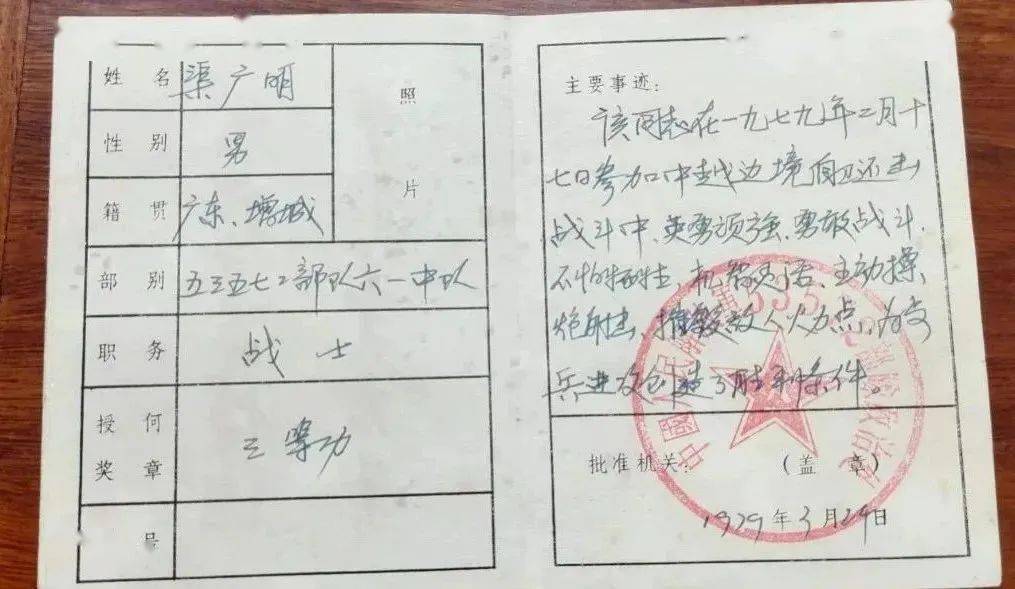 姓名 渠广明
照片
性别 男
籍贯 广东、增城
部别 五三五七二部队六一中队
职务 战士
授何奖章 三等功
号
主要事迹:
该同志在一九七九年二月十
七日参加中越边境自卫还击
战斗中、英勇顽强、勇敢战斗、
不怕牺牲、机智灵活、主动操
炮射击、摧毁敌人火力点,为步
兵进攻创造了胜利条件。
中国人民解放军 5357 部队政治
批准机关: (盖章)
1979年3月29日